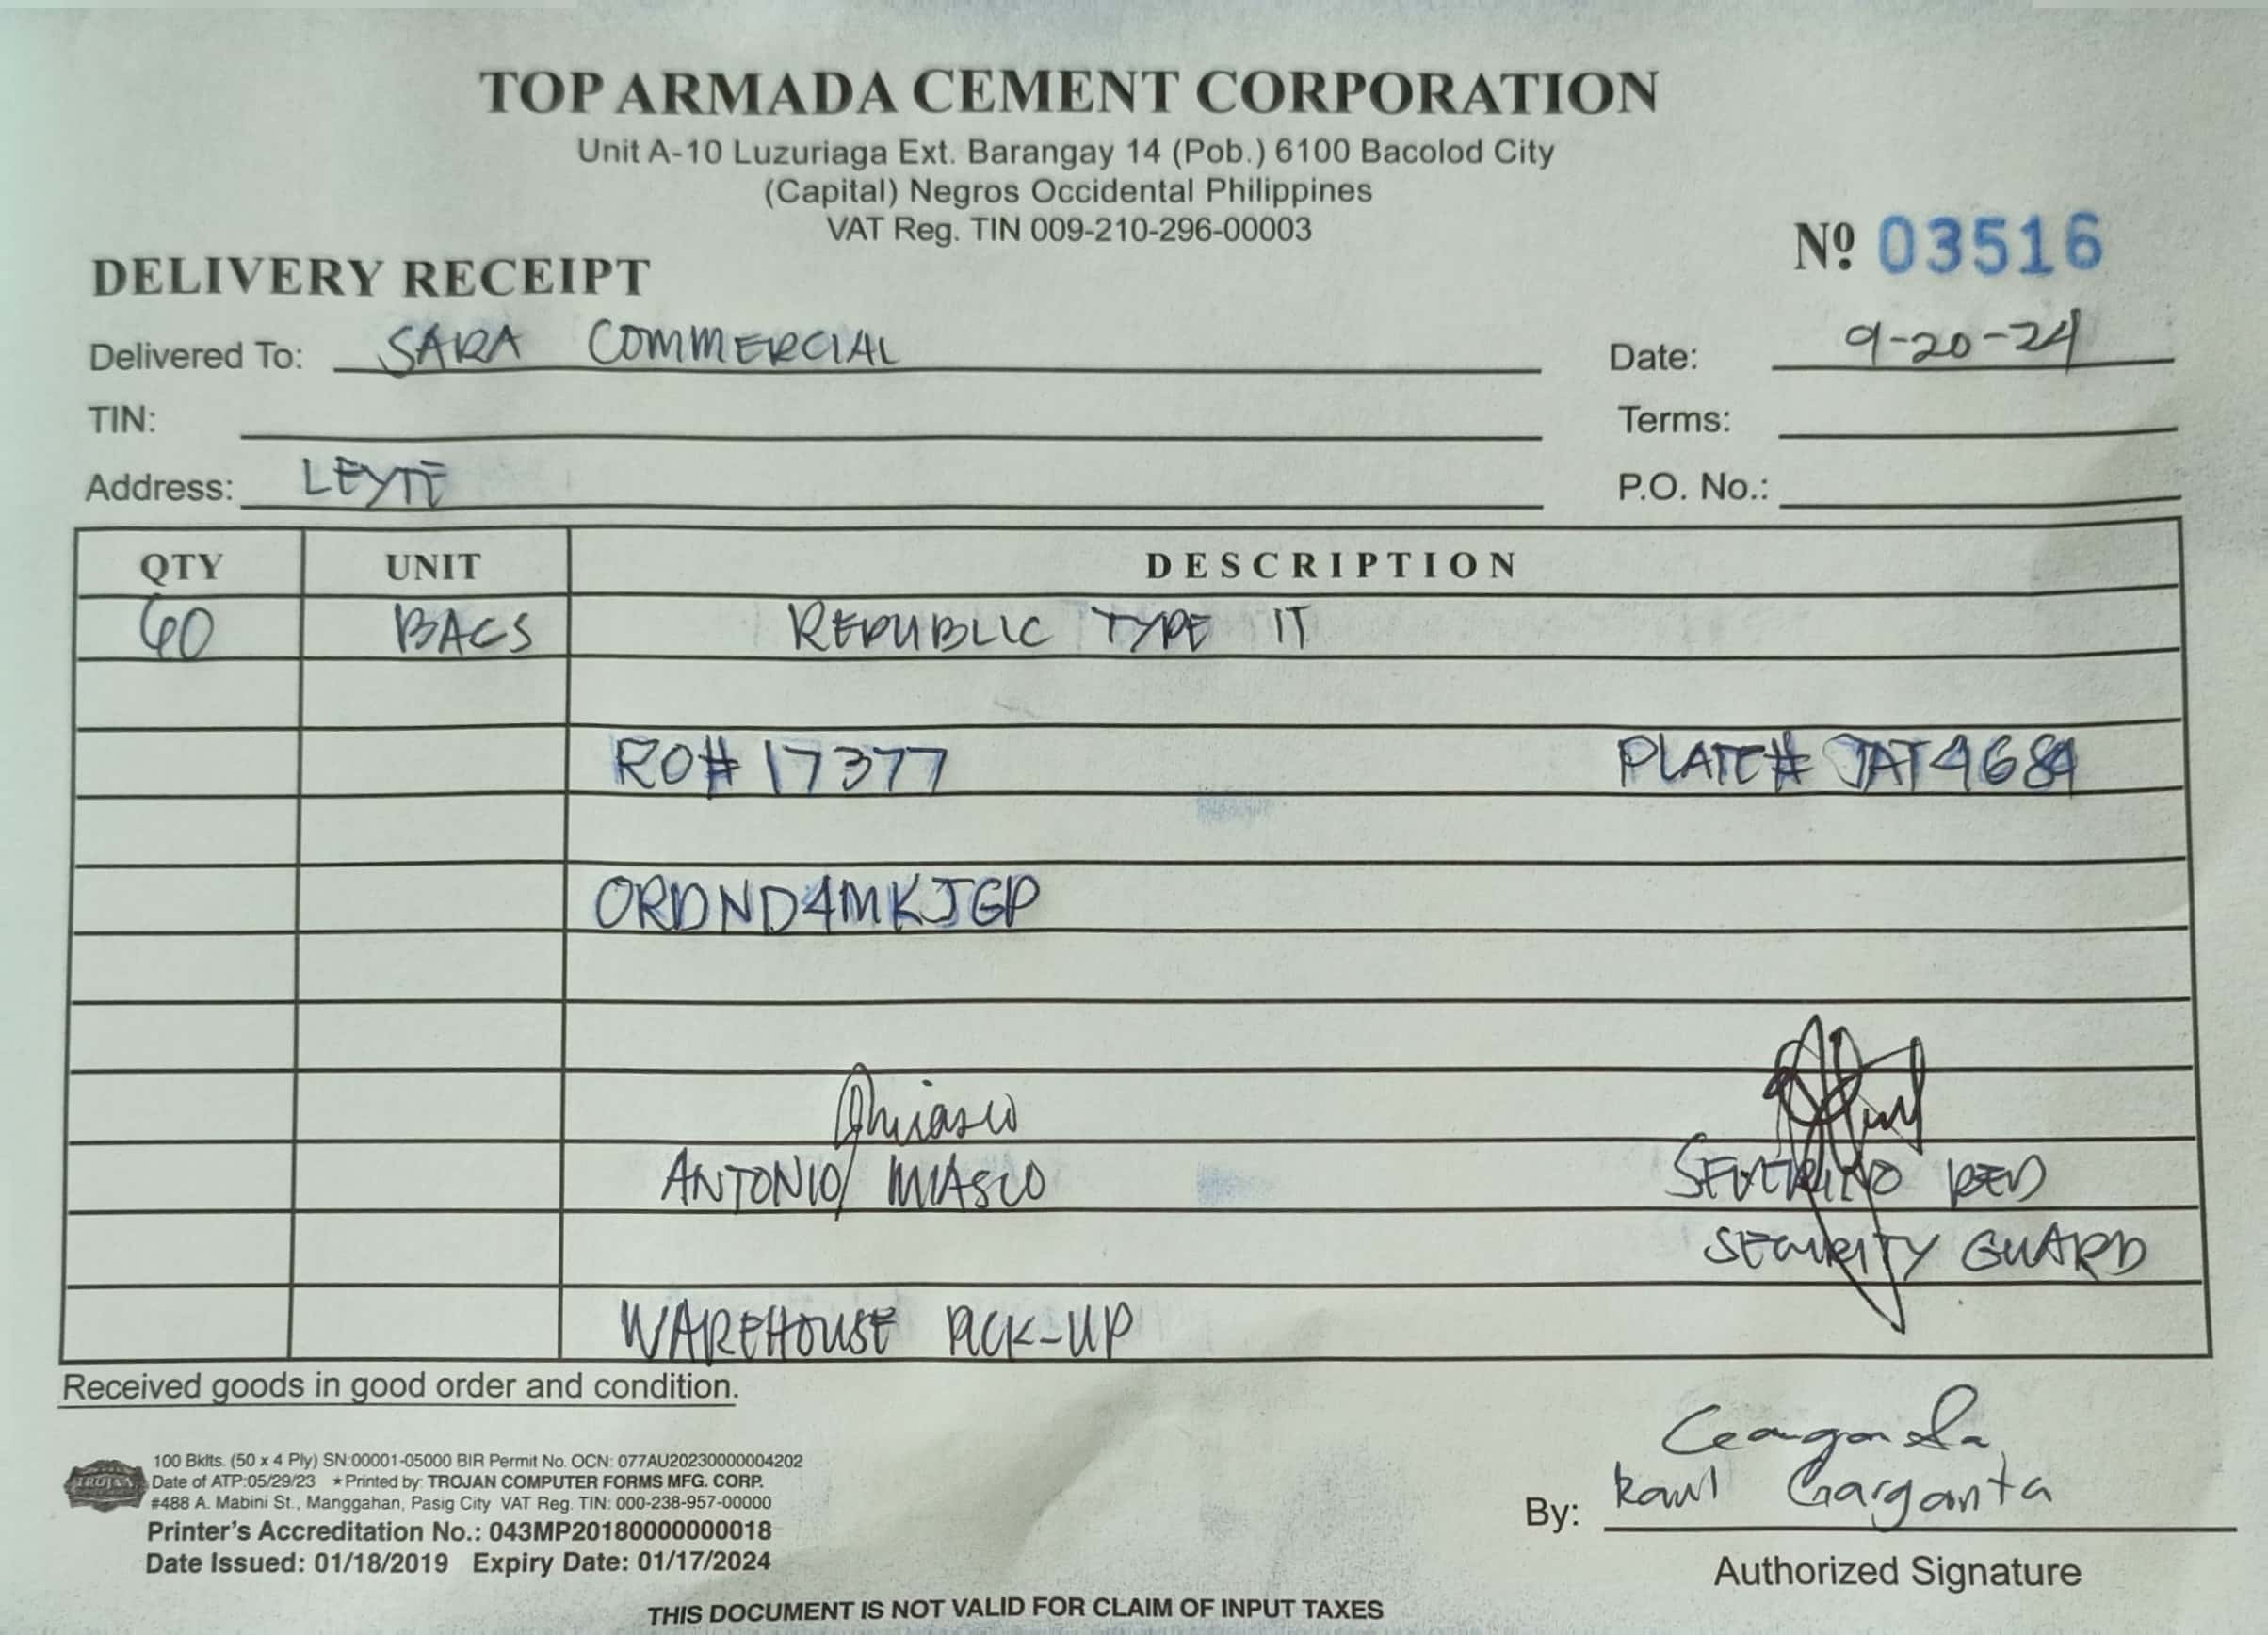 TOP ARMADA CEMENT CORPORATION
Unit A-10 Luzuriaga Ext. Barangay 14 (Pob.) 6100 Bacolod City
(Capital) Negros Occidental Philippines
VAT Reg. TIN 009-210-296-00003
Nº 03516
DELIVERY RECEIPT
Delivered To: SARA COMMERCIAL
Date: 9-20-24
TIN:
Terms:
Address: LEYTE
P.O. No.:
QTY UNIT DESCRIPTION
60 BAGS REPUBLIC TYPE IT
RO# 17377 PLATE# JAT4684
ORDND4MKJGP
ANTONIO MIASCO SEVERINO RED
SECURITY GUARD
WAREHOUSE PICK-UP
Received goods in good order and condition.
100 Bklts. (50 x 4 Ply) SN:00001-05000 BIR Permit No. OCN: 077AU20230000004202
TROJAN Date of ATP:05/29/23 ★Printed by: TROJAN COMPUTER FORMS MFG. CORP.
#488 A. Mabini St., Manggahan, Pasig City VAT Reg. TIN: 000-238-957-00000
Printer's Accreditation No.: 043MP20180000000018
Date Issued: 01/18/2019 Expiry Date: 01/17/2024
By: Raul Garganta
Authorized Signature
THIS DOCUMENT IS NOT VALID FOR CLAIM OF INPUT TAXES